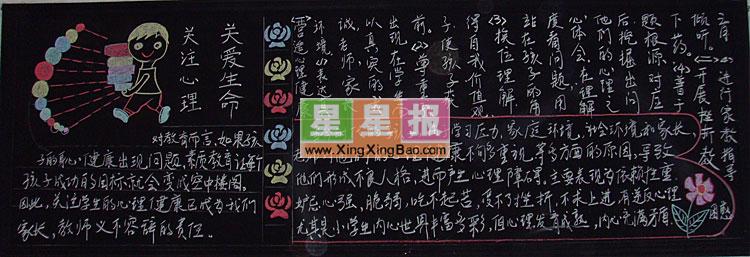 关爱生命
关注心理
对教育而言,如果孩
子的心理健康出现问题,素质教育让每个
孩子成功的目标就会变成空中楼阁。
因此,关注学生的心理健康已成为我们
家长,教师义不容辞的责任。
进行家教指导
开展挫折教
倾听
下药。(4)善于
题根源对症
后挖掘出问
他们的心理之
心体会,在理解
度看问题,用
站在孩子的角
(3)换位理解
得自我价值观
子,使孩子获
前。(2)尊重
出现在学
以真实的
诚,老师、家
环境。(1)表达
营造心理健
星星报
www.XingXingBao.com
学习压力,家庭环境,社会环境和家长,
重视等多方面的原因,导致
他们形成不良人格,进而产生心理障碍。主要表现为依赖性重
妒忌心强、脆弱,吃不起苦,受不了挫折,不求上进,有逆反心理
尤其是小学生内心世界丰富多彩,但心理发育成熟,内心充满矛盾
困惑